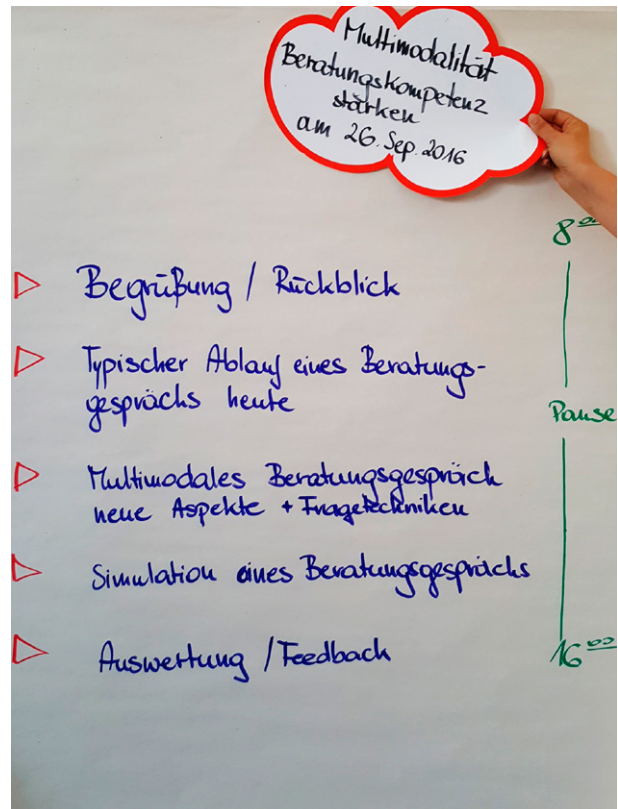 Multimodalität
Beratungskompetenz
stärken
am 26. Sep. 2016
8 00
Begrüßung / Rückblick
Typischer Ablauf eines Beratungs-
gesprächs heute
Pause
Multimodales Beratungsgespräch
neue Aspekte + Fragetechniken
Simulation eines Beratungsgesprächs
Auswertung / Feedback
16 00